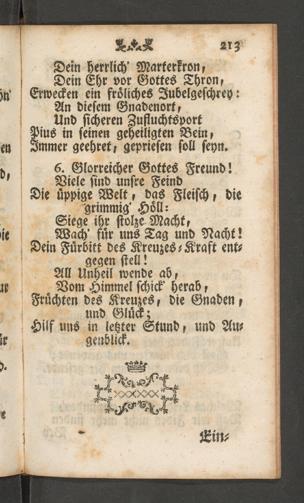 213
Dein herrlich' Marterkron,
Dein Ehr vor Gottes Thron,
Erwecken ein fröliches Jubelgeschrey:
An diesem Gnadenort,
Und sicheren Zufluchtsport
Pius in seinen geheiligten Bein,
Immer geehret, gepriesen soll seyn.
6. Glorreicher Gottes Freund!
Viele sind unsre Feind
Die üppige Welt, das Fleisch, die
grimmig' Höll:
Siege ihr stolze Macht,
Wach' für uns Tag und Nacht!
Dein Fürbitt des Kreuzes-Kraft ent-
gegen stell!
All Unheil wende ab,
Vom Himmel schick' herab,
Früchten des Kreuzes, die Gnaden,
und Glück;
Hilf uns in letzter Stund, und Au-
genblick.
Ein-